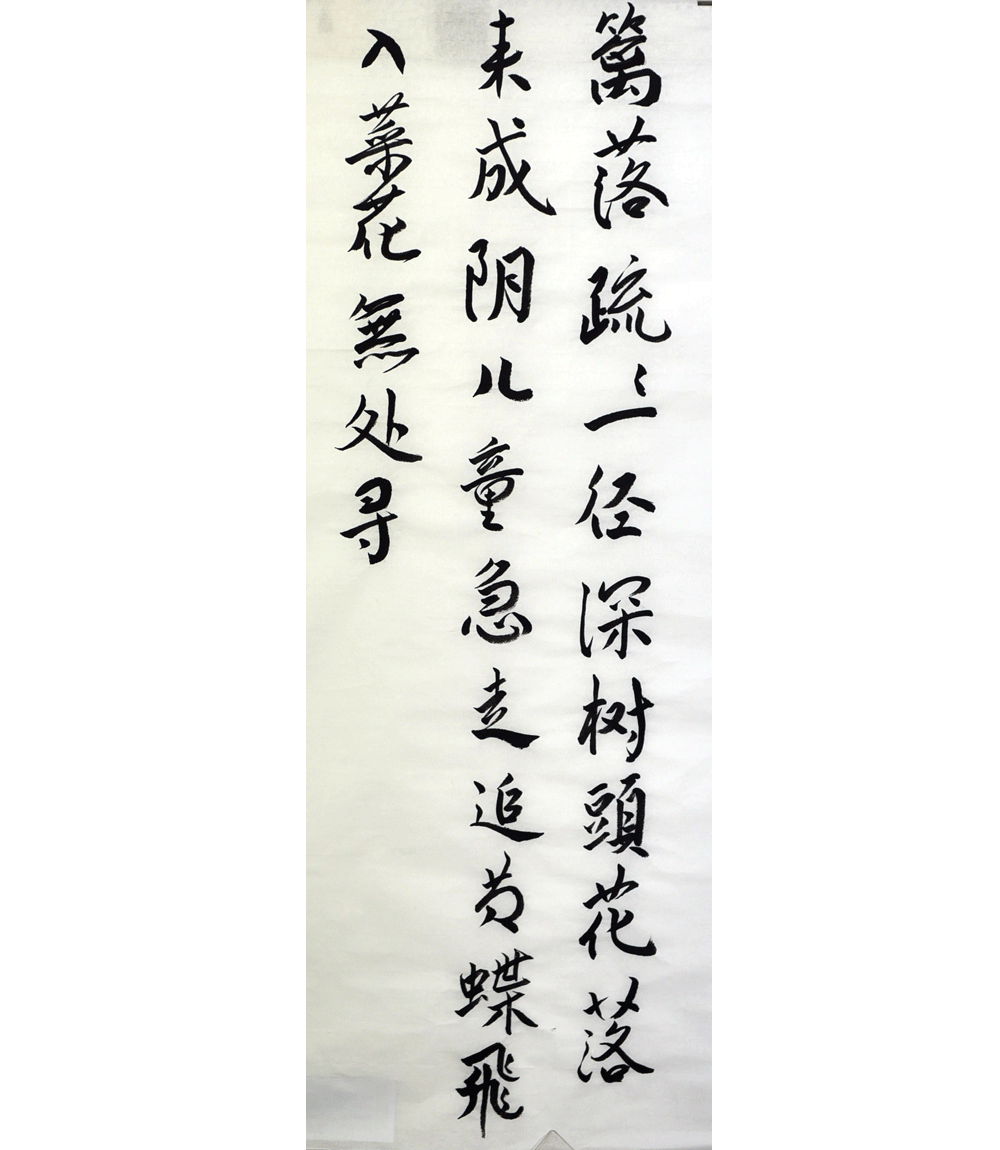 篱落疏〻一径深树頭花落
未成阴儿童急走追黄蝶飛
入菜花無处寻